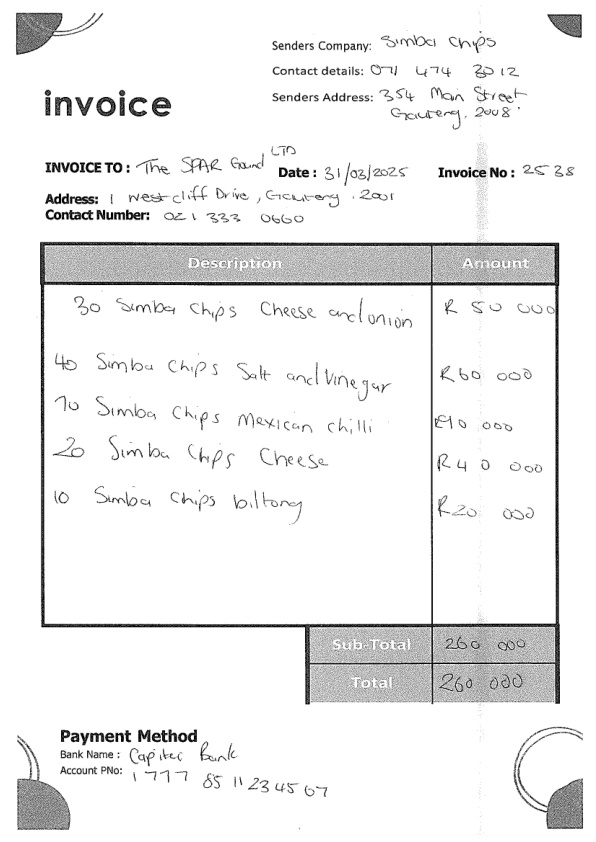 Senders Company: Simba Chips
Contact details: 071 474 3012
Senders Address: 354 Main Street
Gauteng, 2008
invoice
INVOICE TO : The SPAR Group LTD Date : 31/03/2025 Invoice No : 2538
Address: 1 Westcliff Drive, Gauteng, 2001
Contact Number: 021 333 0660
Description Amount
30 Simba Chips Cheese and onion R 50 000
40 Simba Chips Salt and Vinegar R60 000
70 Simba Chips Mexican chilli R90 000
20 Simba Chips Cheese R40 000
10 Simba Chips biltong R20 000
Sub-Total 260 000
Total 260 000
Payment Method
Bank Name : Capitec Bank
Account PNo: 1777 85 11 234567